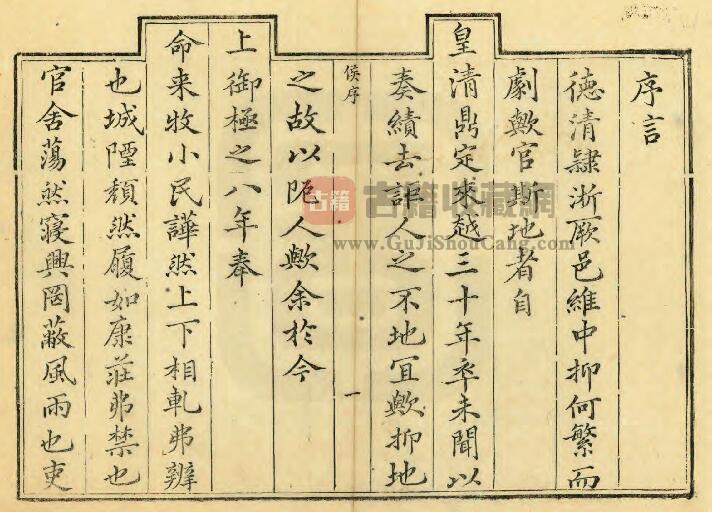 序言
德清隸浙厥邑維中抑何繁而
劇歟官斯地者自
皇清鼎定來越三十年率未聞以
奏績去詎人之不地宜歟抑地
侯序
一
之故以阨人歟余於今
上御極之八年奉
命来牧小民譁然上下相軋弗辨
也城陻頹然履如康莊弗禁也
官舍蕩然寢興罔蔽風雨也吏
古籍
古籍收藏網
www.GuJiShouCang.com